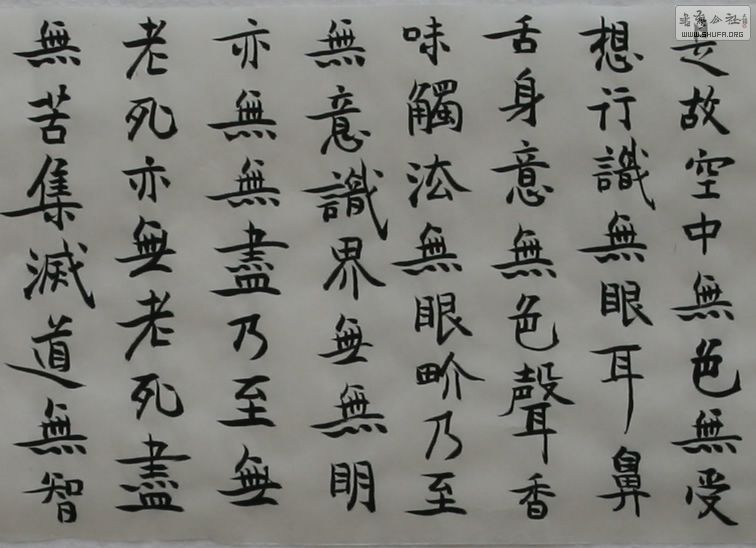 是故空中無色無受
想行識無眼耳鼻
舌身意無色聲香
味觸法無眼畍乃至
無意識界無無明
亦無無盡乃至無
老死亦無老死盡
無苦集滅道無智
书法公社
WWW.SHUFA.ORG